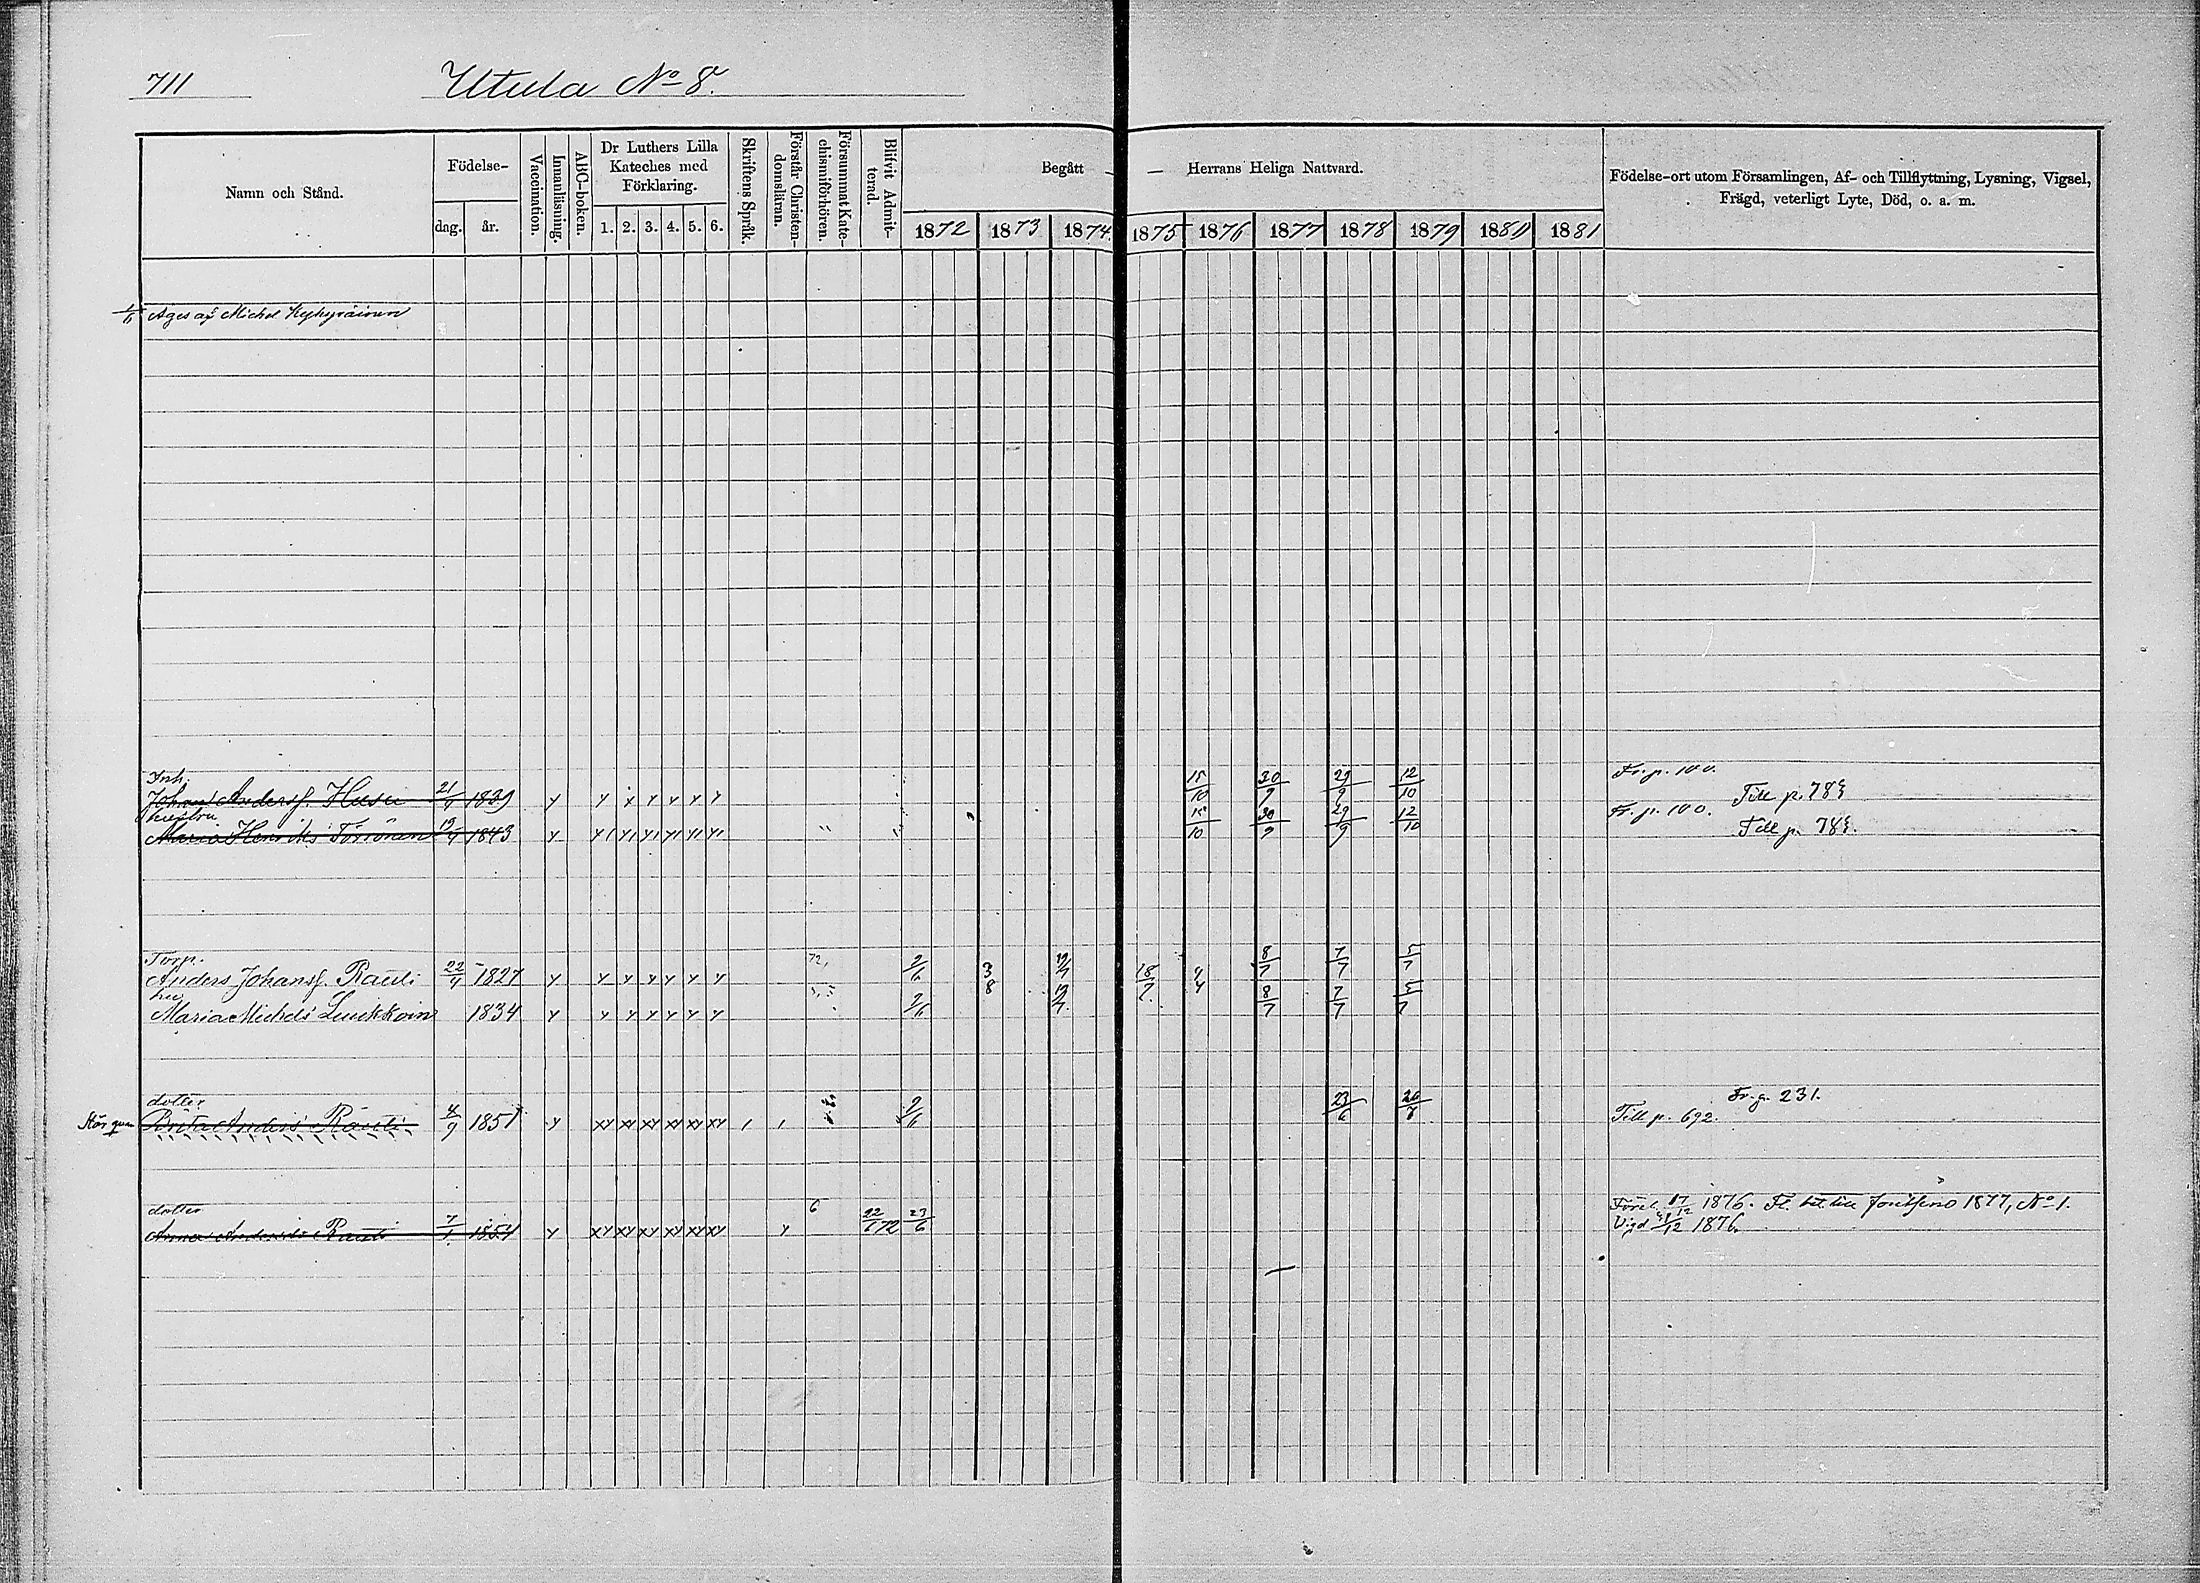 711 Utula No 8.
Namn och Stånd.
Födelse-
dag. år.
Vaccination.
Innanläsning.
ABC-boken.
Dr Luthers Lilla
Kateches med
Förklaring.
1. 2. 3. 4. 5. 6.
Skriftens Språk.
Förstår Christen-
domsläran.
Försummat Kate-
chismiförhören.
Blifvit Admit-
terad.
Begått — — Herrans Heliga Nattvard.
1872 1873 1874. 1875 1876 1877 1878 1879 1880 1881
Födelse-ort utom Församlingen, Af- och Tillflyttning, Lysning, Vigsel,
Frägd, veterligt Lyte, Död, o. a. m.
Äges af Michel
Inh. Fr. p. 100.
Johan Andersf. Husu 21/9 1839 y y y y y y y 15/10 30/9 29/9 12/10 Till p. 783
hustru Fr. p. 100.
Maria Henriks Törrönen 19/9 1843 y 15/10 30/9 29/9 12/10 Till p. 783.
Torp.
Anders Johansf. Rauti 22/9 1827 y y y y y y y 2/6 3 8 19/7 18/7 8/7 7/7 5/7
hu
Maria Michels 1834 y y y y y y y 2/6 19/7 8/7 7/7 5/7
dotter Fr. p. 231.
Brita Anders Rauti 4/9 1851 y xy xy xy xy xy xy 2/6 23/6 Till p. 692.
dotter 6 1876. 1877, No 1.
Anna Andersdr Rauti 7/1 1854 y xy xy xy xy xy xy y 22/6 72 23/6 Vigd 1876.